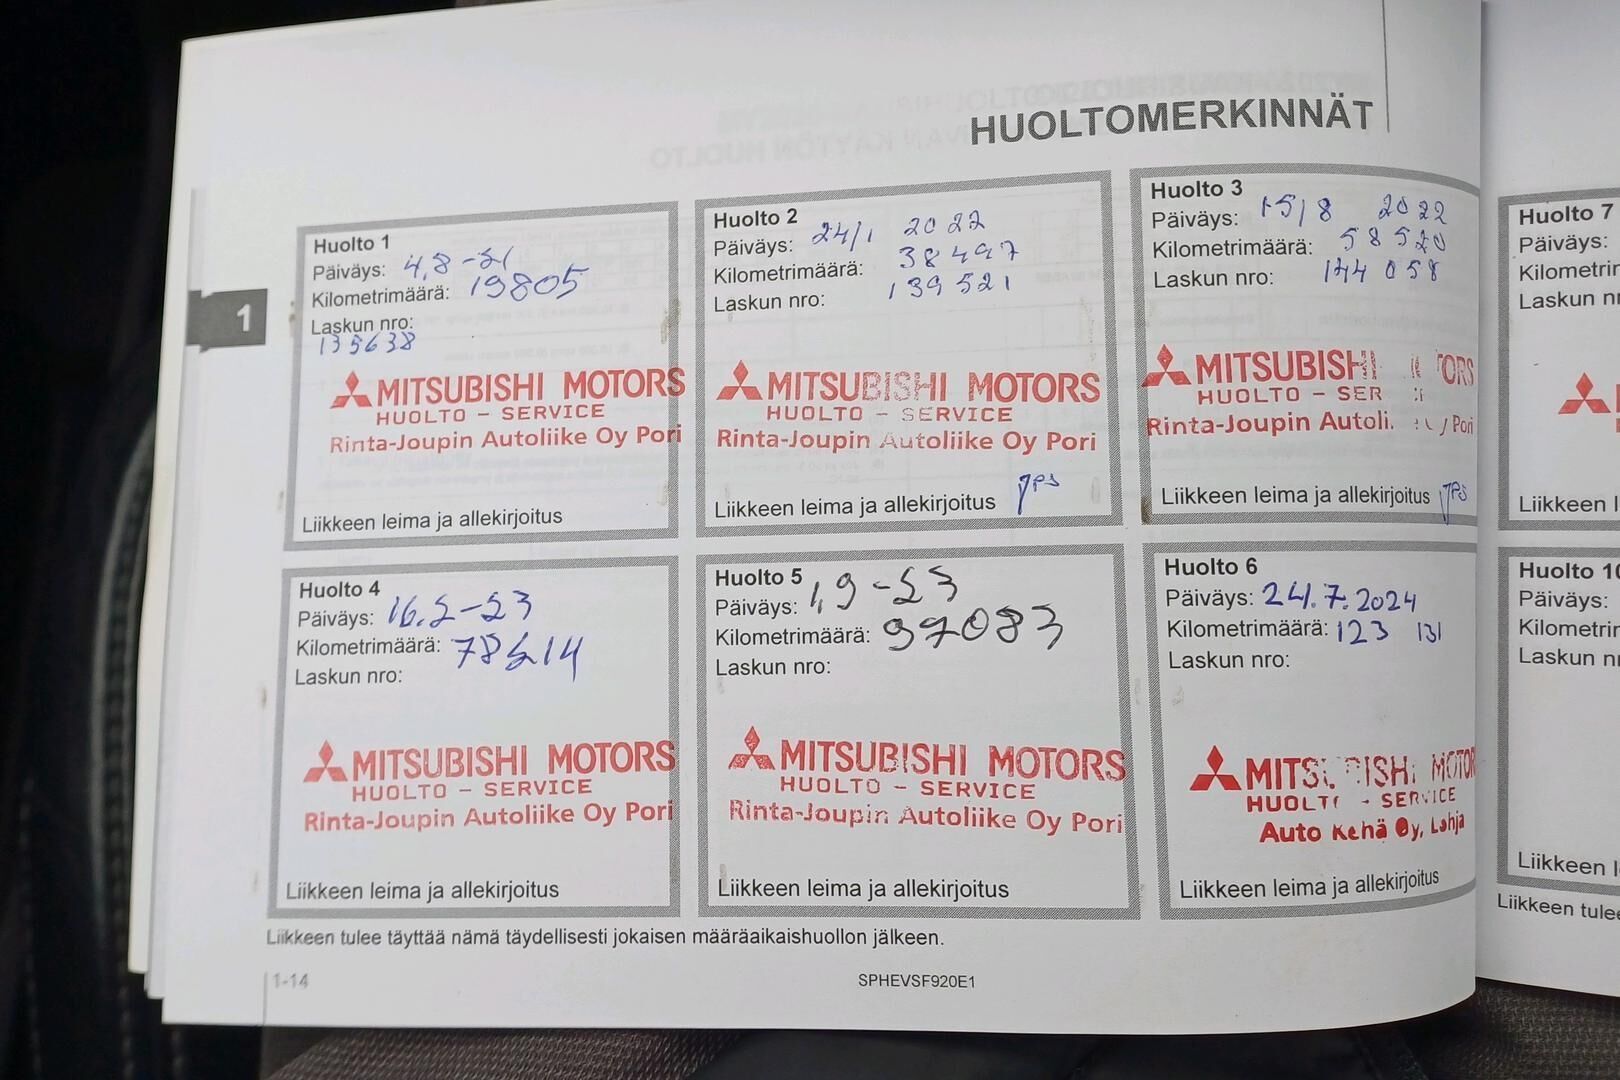 HUOLTOMERKINNÄT
1
Huolto 1
Päiväys: 4,8-21
Kilometrimäärä: 19805
Laskun nro:
135638
MITSUBISHI MOTORS
HUOLTO - SERVICE
Rinta-Joupin Autoliike Oy Pori
Liikkeen leima ja allekirjoitus
Huolto 2
Päiväys: 24/1 2022
Kilometrimäärä: 38497
Laskun nro: 139521
MITSUBISHI MOTORS
HUOLTO - SERVICE
Rinta-Joupin Autoliike Oy Pori
Liikkeen leima ja allekirjoitus
Huolto 3
Päiväys: 15/8 2022
Kilometrimäärä: 58520
Laskun nro: 144058
MITSUBISHI MOTORS
HUOLTO - SER
Rinta-Joupin Autoli Pori
Liikkeen leima ja allekirjoitus
Huolto 4
Päiväys: 16.2-23
Kilometrimäärä: 78214
Laskun nro:
MITSUBISHI MOTORS
HUOLTO - SERVICE
Rinta-Joupin Autoliike Oy Pori
Liikkeen leima ja allekirjoitus
Huolto 5
Päiväys: 1,9-23
Kilometrimäärä: 97083
Laskun nro:
MITSUBISHI MOTORS
HUOLTO - SERVICE
Rinta-Joupin Autoliike Oy Pori
Liikkeen leima ja allekirjoitus
Huolto 6
Päiväys: 24.7.2024
Kilometrimäärä: 123 131
Laskun nro:
MITSUBISHI MOTOR
HUOLTO - SERVICE
Auto Kehä Oy, Lohja
Liikkeen leima ja allekirjoitus
Huolto 7
Päiväys:
Kilometrin
Laskun n
Liikkeen l
Huolto 10
Päiväys:
Kilometrin
Laskun n
Liikkeen l
Liikkeen tulee
Liikkeen tulee täyttää nämä täydellisesti jokaisen määräaikaishuollon jälkeen.
1-14
SPHEVSF920E1